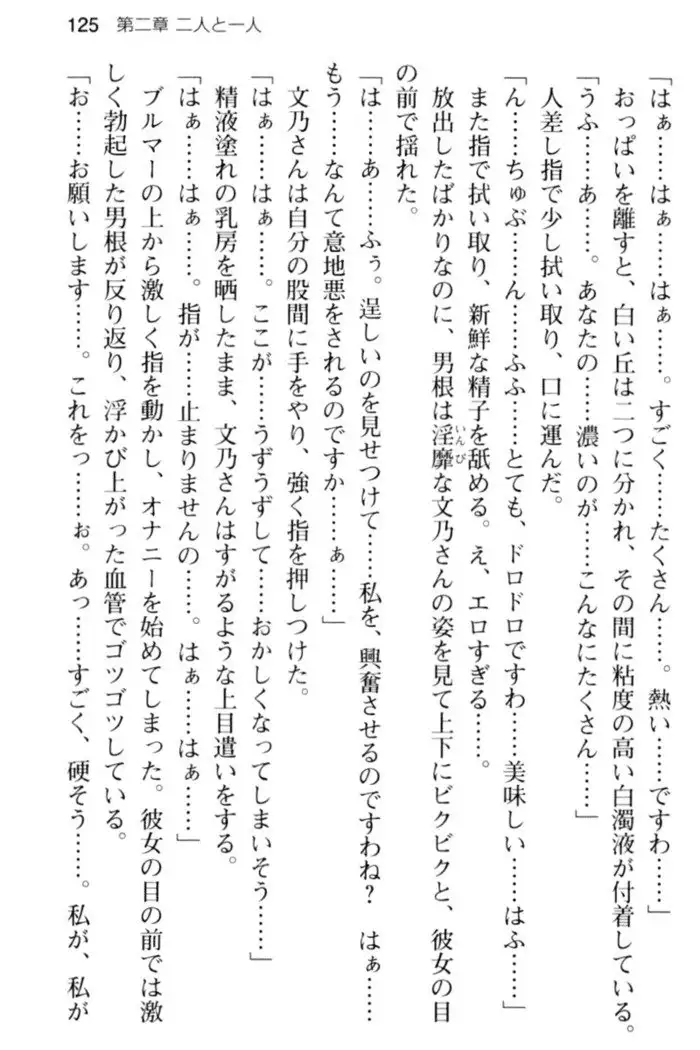 125 第二章 二人と一人
「はぁ……はぁ……はぁ……。すごく……たくさん……。熱い……ですわ……」
おっぱいを離すと、白い丘は二つに分かれ、その間に粘度の高い白濁液が付着している。
「うふ……あ……。あなたの……濃いのが……こんなにたくさん……」
人差し指で少し拭い取り、口に運んだ。
「ん……ちゅぶ……ん……ふふ……とても、ドロドロですわ……美味しい……はふ……」
また指で拭い取り、新鮮な精子を舐める。え、エロすぎる……。
放出したばかりなのに、男根は淫靡いんびな文乃さんの姿を見て上下にビクビクと、彼女の目
の前で揺れた。
「は……あ……ふぅ。逞しいのを見せつけて……私を、興奮させるのですわね？　はぁ……
もう……なんて意地悪をされるのですか……ぁ……」
文乃さんは自分の股間に手をやり、強く指を押しつけた。
「はぁ……はぁ……。ここが……うずうずして……おかしくなってしまいそう……」
精液塗れの乳房を晒したまま、文乃さんはすがるような上目遣いをする。
「はぁ……はぁ……。指が……止まりませんの……。はぁ……はぁ……」
ブルマーの上から激しく指を動かし、オナニーを始めてしまった。彼女の目の前では激
しく勃起した男根が反り返り、浮かび上がった血管でゴツゴツしている。
「お……お願いします……。これをっ……ぉ。あっ……すごく、硬そう……。私が、私が